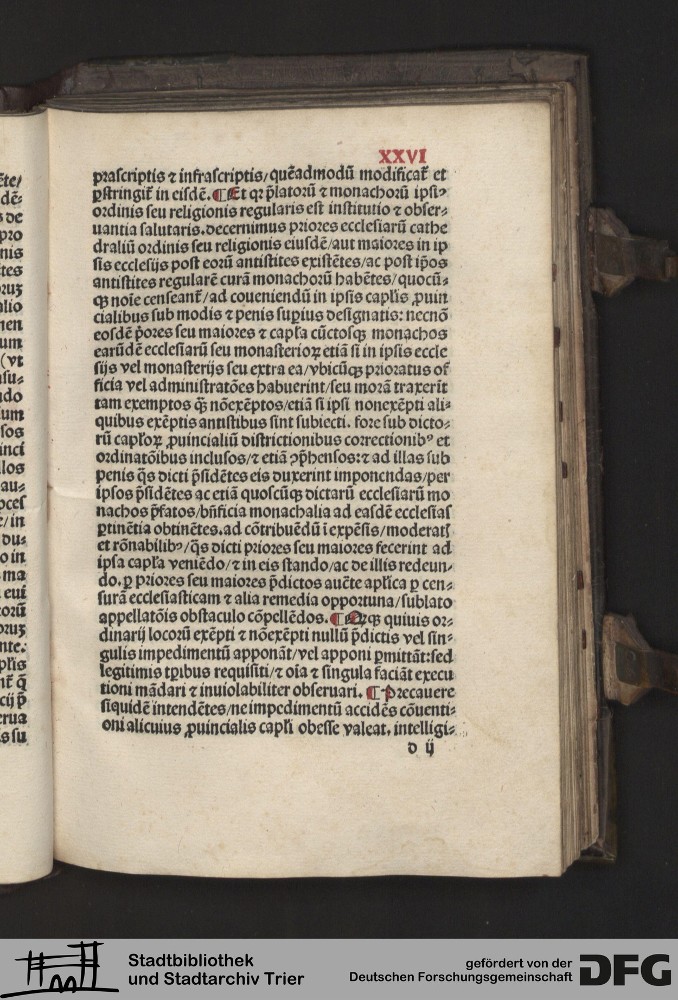 XXVI
prascriptis ⁊ infrascriptis/quēadmodū modificat᷑ et
p̱stringit᷑ in eisdē. ¶Et qꝛ p̄latorū ⁊ monachorū ipsiꝰ
ordinis seu religionis regularis est institutio ⁊ obser⸗
uantia salutaris.decernimus priores ecclesiarū cathe
draliū ordinis seu religionis eiusdē/aut maiores in ip
sis ecclesijs post eorū antistites existētes/ac post ip̄os
antistites regularē curā monachorū habētes/quocū⸗
qꝫ noīe censeant᷑/ad coueniendū in ipsis capl̄is ꝓuin
cialibus sub modis ⁊ penis suꝑius designatis: necnō
eosdē p̄ores seu maiores ⁊ capl̄a cūctosqꝫ monachos
earūdē ecclesiarū seu monasterioꝝ etiā si in ipsis eccle
sijs vel monasterijs seu extra ea/vbicūqꝫ prioratus of
ficia vel administratōes habuerint/seu morā traxerīt
tam exemptos qꝫ̄ nōexēptos/etiā si ipsi nonexēpti ali⸗
quibus exēptis antistibus sint subiecti. fore sub dicto⸗
rū capl̄oꝝ ꝓuincialiū districtionibus correctionibꝰ et
ordinatōibus inclusos/⁊ etiā ꝯp̄hensos:⁊ ad illas sub
penis q̄s dicti p̄sidētes eis duxerint imponendas/per
ipsos p̄sidētes ac etiā quoscūqꝫ dictarū ecclesiarū mo
nachos p̄fatos/bn̄ficia monachalia ad easdē ecclesias
ꝑtinētia obtinētes.ad cōtribuēdū ī expēsis/moderatꝭ
et rōnabilibꝰ/q̄s dicti priores seu maiores fecerint ad
ipsa capl̄a veniēdo/⁊ in eis stando/ac de illis redeun⸗
do.ꝑ priores seu maiores p̄dictos aucte apl̄ica ꝑ cen⸗
surā ecclesiasticam ⁊ alia remedia opportuna/sublato
appellatōis obstaculo cōpellēdos. ¶Erqꝫ quiuis or⸗
dinarij locorū exēpti ⁊ nōexēpti nullū p̄dictis vel sin⸗
gulis impedimentū apponāt/vel apponi ꝑmittāt:sed
legitimis tꝑibus requisiti/⁊ oīa ⁊ singula faciāt execu
tioni mādari ⁊ inuiolabiliter obseruari. ¶Precauere
siquidē intendētes/ne impedimentū accidēs cōuenti⸗
oni alicuius ꝓuincialis capl̄i obesse valeat, intelligi⸗
d ij
ēte/
dē⸗
s de
pro
nis
tes
oruꝫ
alio
nen
um
(vt
su⸗
do
um
sos
inci
llos
au⸗
oces
e/in
du⸗
o in
ma
eui
corū
oruꝫ
nte.
pl̄is
nt̄ q̄
cij p̄
erua
s su
Stadtbibliothek
und Stadtarchiv Trier
gefördert von der
Deutschen Forschungsgemeinschaft
DFG